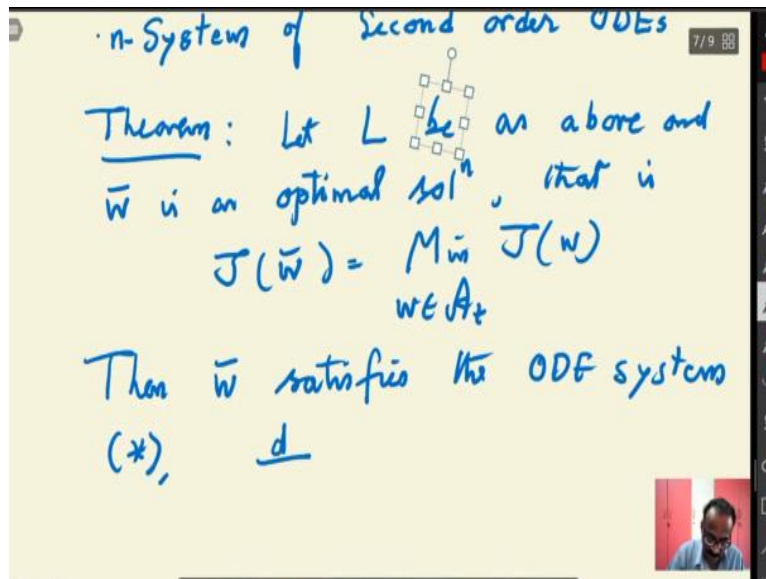 · n- System of Second order ODEs
7/9
Theorem : Let L be as above and
w̄ is an optimal solⁿ, that is
J(w̄) = Min J(w)
w ∈ A_t
Then w̄ satisfies the ODE systems
(*), d